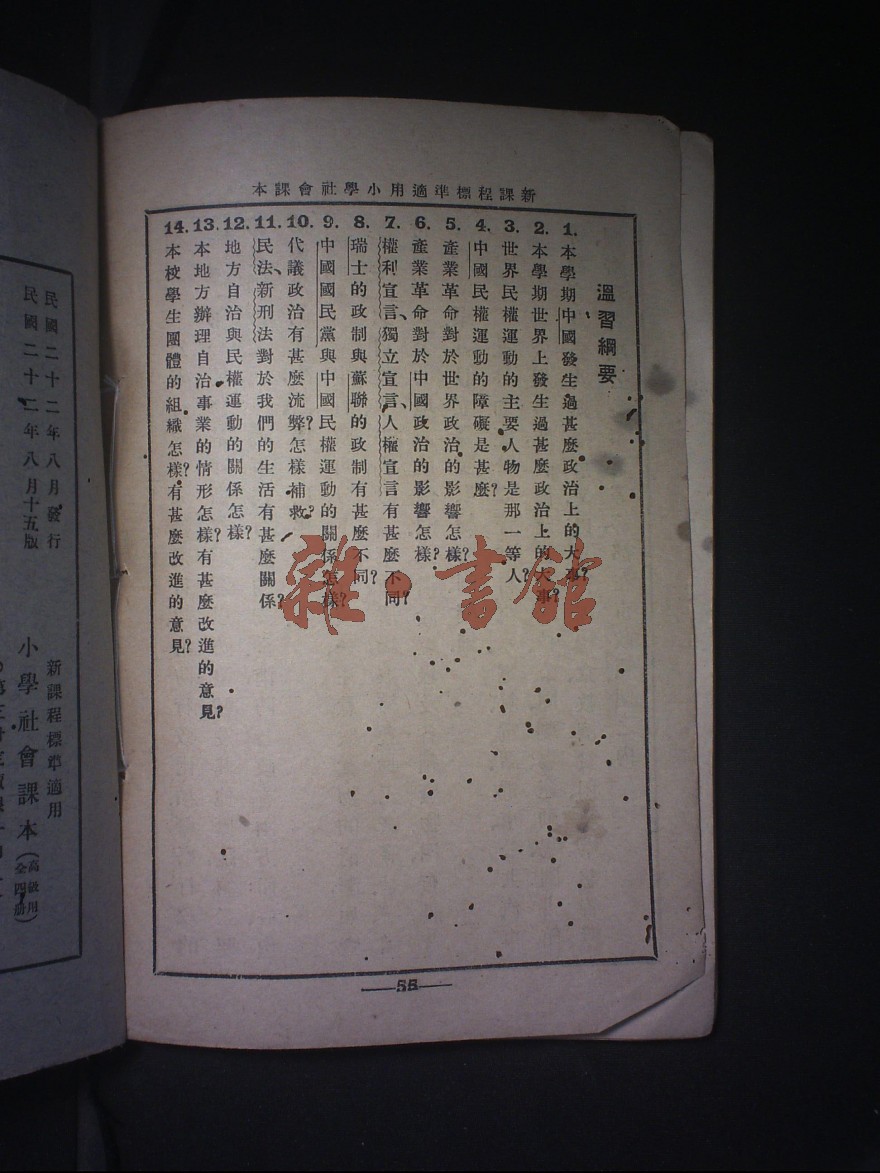 新課程標準適用小學社會課本
溫習綱要
1. 本學期中國發生過甚麼政治上的大事?
2. 本學期世界上發生過甚麼政治上的大事?
3. 世界民權運動的主要人物是那一等人?
4. 中國民權運動的障礙是甚麼?
5. 產業革命對於世界政治的影響怎樣?
6. 產業革命對於中國政治的影響怎樣?
7. 權利宣言、獨立宣言、人權宣言有甚麼不同?
8. 瑞士的政制與蘇聯的政制有甚麼不同?
9. 中國國民黨與中國民權運動的關係怎樣?
10. 代議政治有甚麼流弊?怎樣補救?
11. 民法、新刑法對於我們的生活有甚麼關係?
12. 地方自治與民權運動的關係怎樣?
13. 本地方辦理自治事業的情形怎樣?有甚麼改進的意見?
14. 本校學生團體的組織怎樣?有甚麼改進的意見?
55
雜·書館
民國二十二年八月發行
民國二十二年八月十五版
新課程標準適用
小學社會課本(高級用全四册)